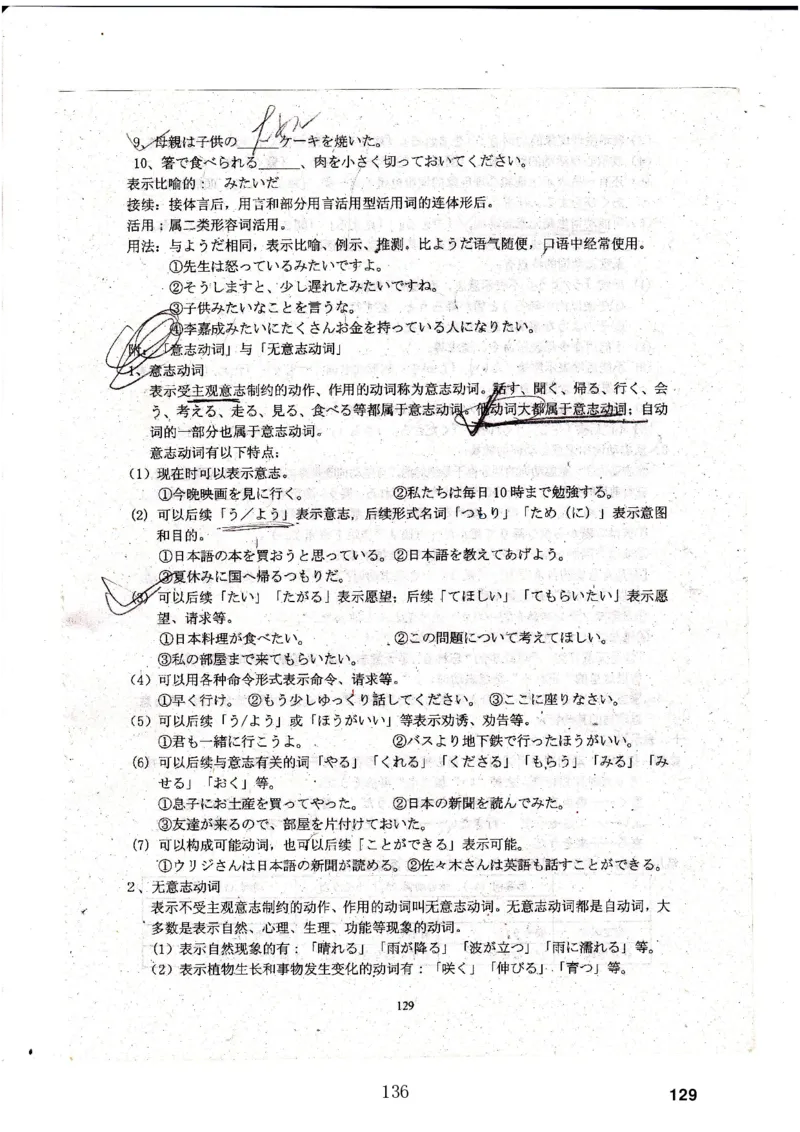 9、母親は子供の ため ケーキを焼いた。
10、箸で食べられる______、肉を小さく切っておいてください。
表示比喻的： みたいだ
接续：接体言后，用言和部分用言活用型活用词的连体形后。
活用：属二类形容词活用。
用法：与ようだ相同，表示比喻、例示、推测。比ようだ语气随便，口语中经常使用。
①先生は怒っているみたいですよ。
②そうしますと、少し遅れたみたいですね。
③子供みたいなことを言うな。
④李嘉成みたいにたくさんお金を持っている人になりたい。
附：「意志动词」与「无意志动词」
1、意志动词
表示受主观意志制约的动作、作用的动词称为意志动词。話す、聞く、帰る、行く、会
う、考える、走る、見る、食べる等都属于意志动词。他动词大都属于意志动词；自动
词的一部分也属于意志动词。
意志动词有以下特点：
(1) 现在时可以表示意志。
①今晩映画を見に行く。 ②私たちは毎日 10 時まで勉強する。
(2) 可以后续「う／よう」表示意志，后续形式名词「つもり」「ため（に）」表示意图
和目的。
①日本語の本を買おうと思っている。②日本語を教えてあげよう。
③夏休みに国へ帰るつもりだ。
(3) 可以后续「たい」「たがる」表示愿望；后续「てほしい」「てもらいたい」表示愿
望、请求等。
①日本料理が食べたい。 ②この問題について考えてほしい。
③私の部屋まで来てもらいたい。
(4) 可以用各种命令形式表示命令、请求等。
①早く行け。 ②もう少しゆっくり話してください。 ③ここに座りなさい。
(5) 可以后续「う/よう」或「ほうがいい」等表示劝诱、劝告等。
①君も一緒に行こうよ。 ②バスより地下鉄で行ったほうがいい。
(6) 可以后续与意志有关的词「やる」「くれる」「くださる」「もらう」「みる」「み
せる」「おく」等。
①息子にお土産を買ってやった。 ②日本の新聞を読んでみた。
③友達が来るので、部屋を片付けておいた。
(7) 可以构成可能动词，也可以后续「ことができる」表示可能。
①ウリジさんは日本語の新聞が読める。②佐々木さんは英語も話すことができる。
2、无意志动词
表示不受主观意志制约的动作、作用的动词叫无意志动词。无意志动词都是自动词，大
多数是表示自然、心理、生理、功能等现象的动词。
(1) 表示自然现象的有：「晴れる」「雨が降る」「波が立つ」「雨に濡れる」等。
(2) 表示植物生长和事物发生变化的动词有：「咲く」「伸びる」「育つ」等。
129
136
129